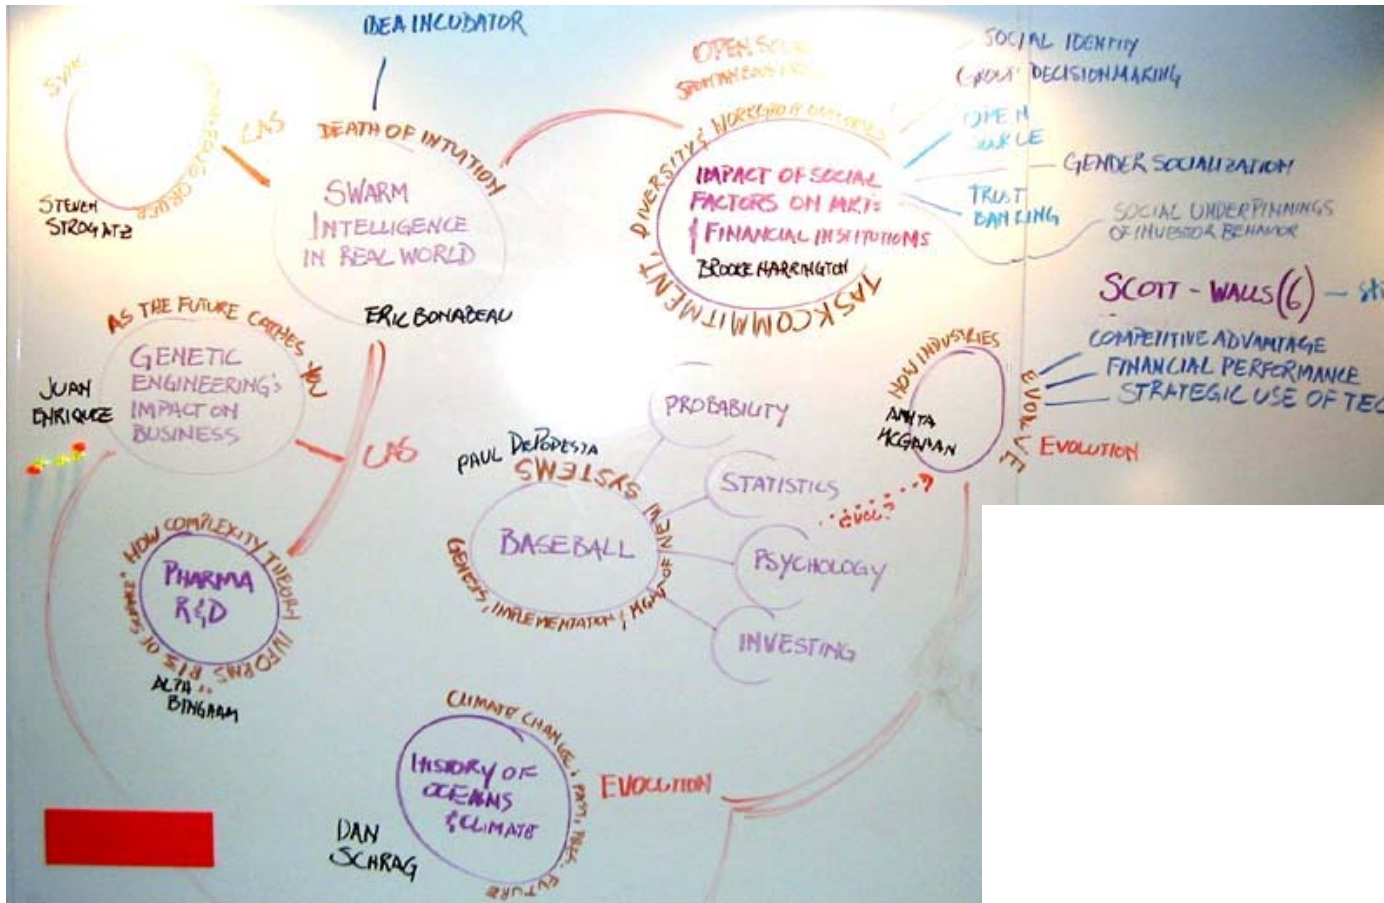 IDEA INCUBATOR
CAS
STEVEN
STROGATZ
DEATH OF INTUITION
SWARM
INTELLIGENCE
IN REAL WORLD
ERIC BONABEAU
DIVERSITY & WORKGROUP OUTCOMES
TASK COMMITMENT,
IMPACT OF SOCIAL
FACTORS ON MKTS
& FINANCIAL INSTITUTIONS
BROOKE HARRINGTON
SOCIAL IDENTITY
GROUP DECISIONMAKING
OPEN
GENDER SOCIALIZATION
TRUST
BANKING
SOCIAL UNDERPINNINGS
OF INVESTOR BEHAVIOR
SCOTT - WALLS (6)
COMPETITIVE ADVANTAGE
FINANCIAL PERFORMANCE
STRATEGIC USE OF TEC
AS THE FUTURE CATCHES YOU
GENETIC
ENGINEERING'S
IMPACT ON
BUSINESS
JUAN
ENRIQUEZ
CAS
HOW INDUSTRIES
EVOLVE
ANITA
MCGAHAN
EVOLUTION
EVOL?
PAUL DEPODESTA
GENESIS, IMPLEMENTATION & MGMT OF NEW SYSTEMS
BASEBALL
PROBABILITY
STATISTICS
PSYCHOLOGY
INVESTING
HOW COMPLEXITY THEORY INFORMS BIS OF SCIENCE
PHARMA
R&D
BINGHAM
CLIMATE CHANGE: PAST, PRES. FUTURE
HISTORY OF
OCEANS
& CLIMATE
EVOLUTION
DAN
SCHRAG